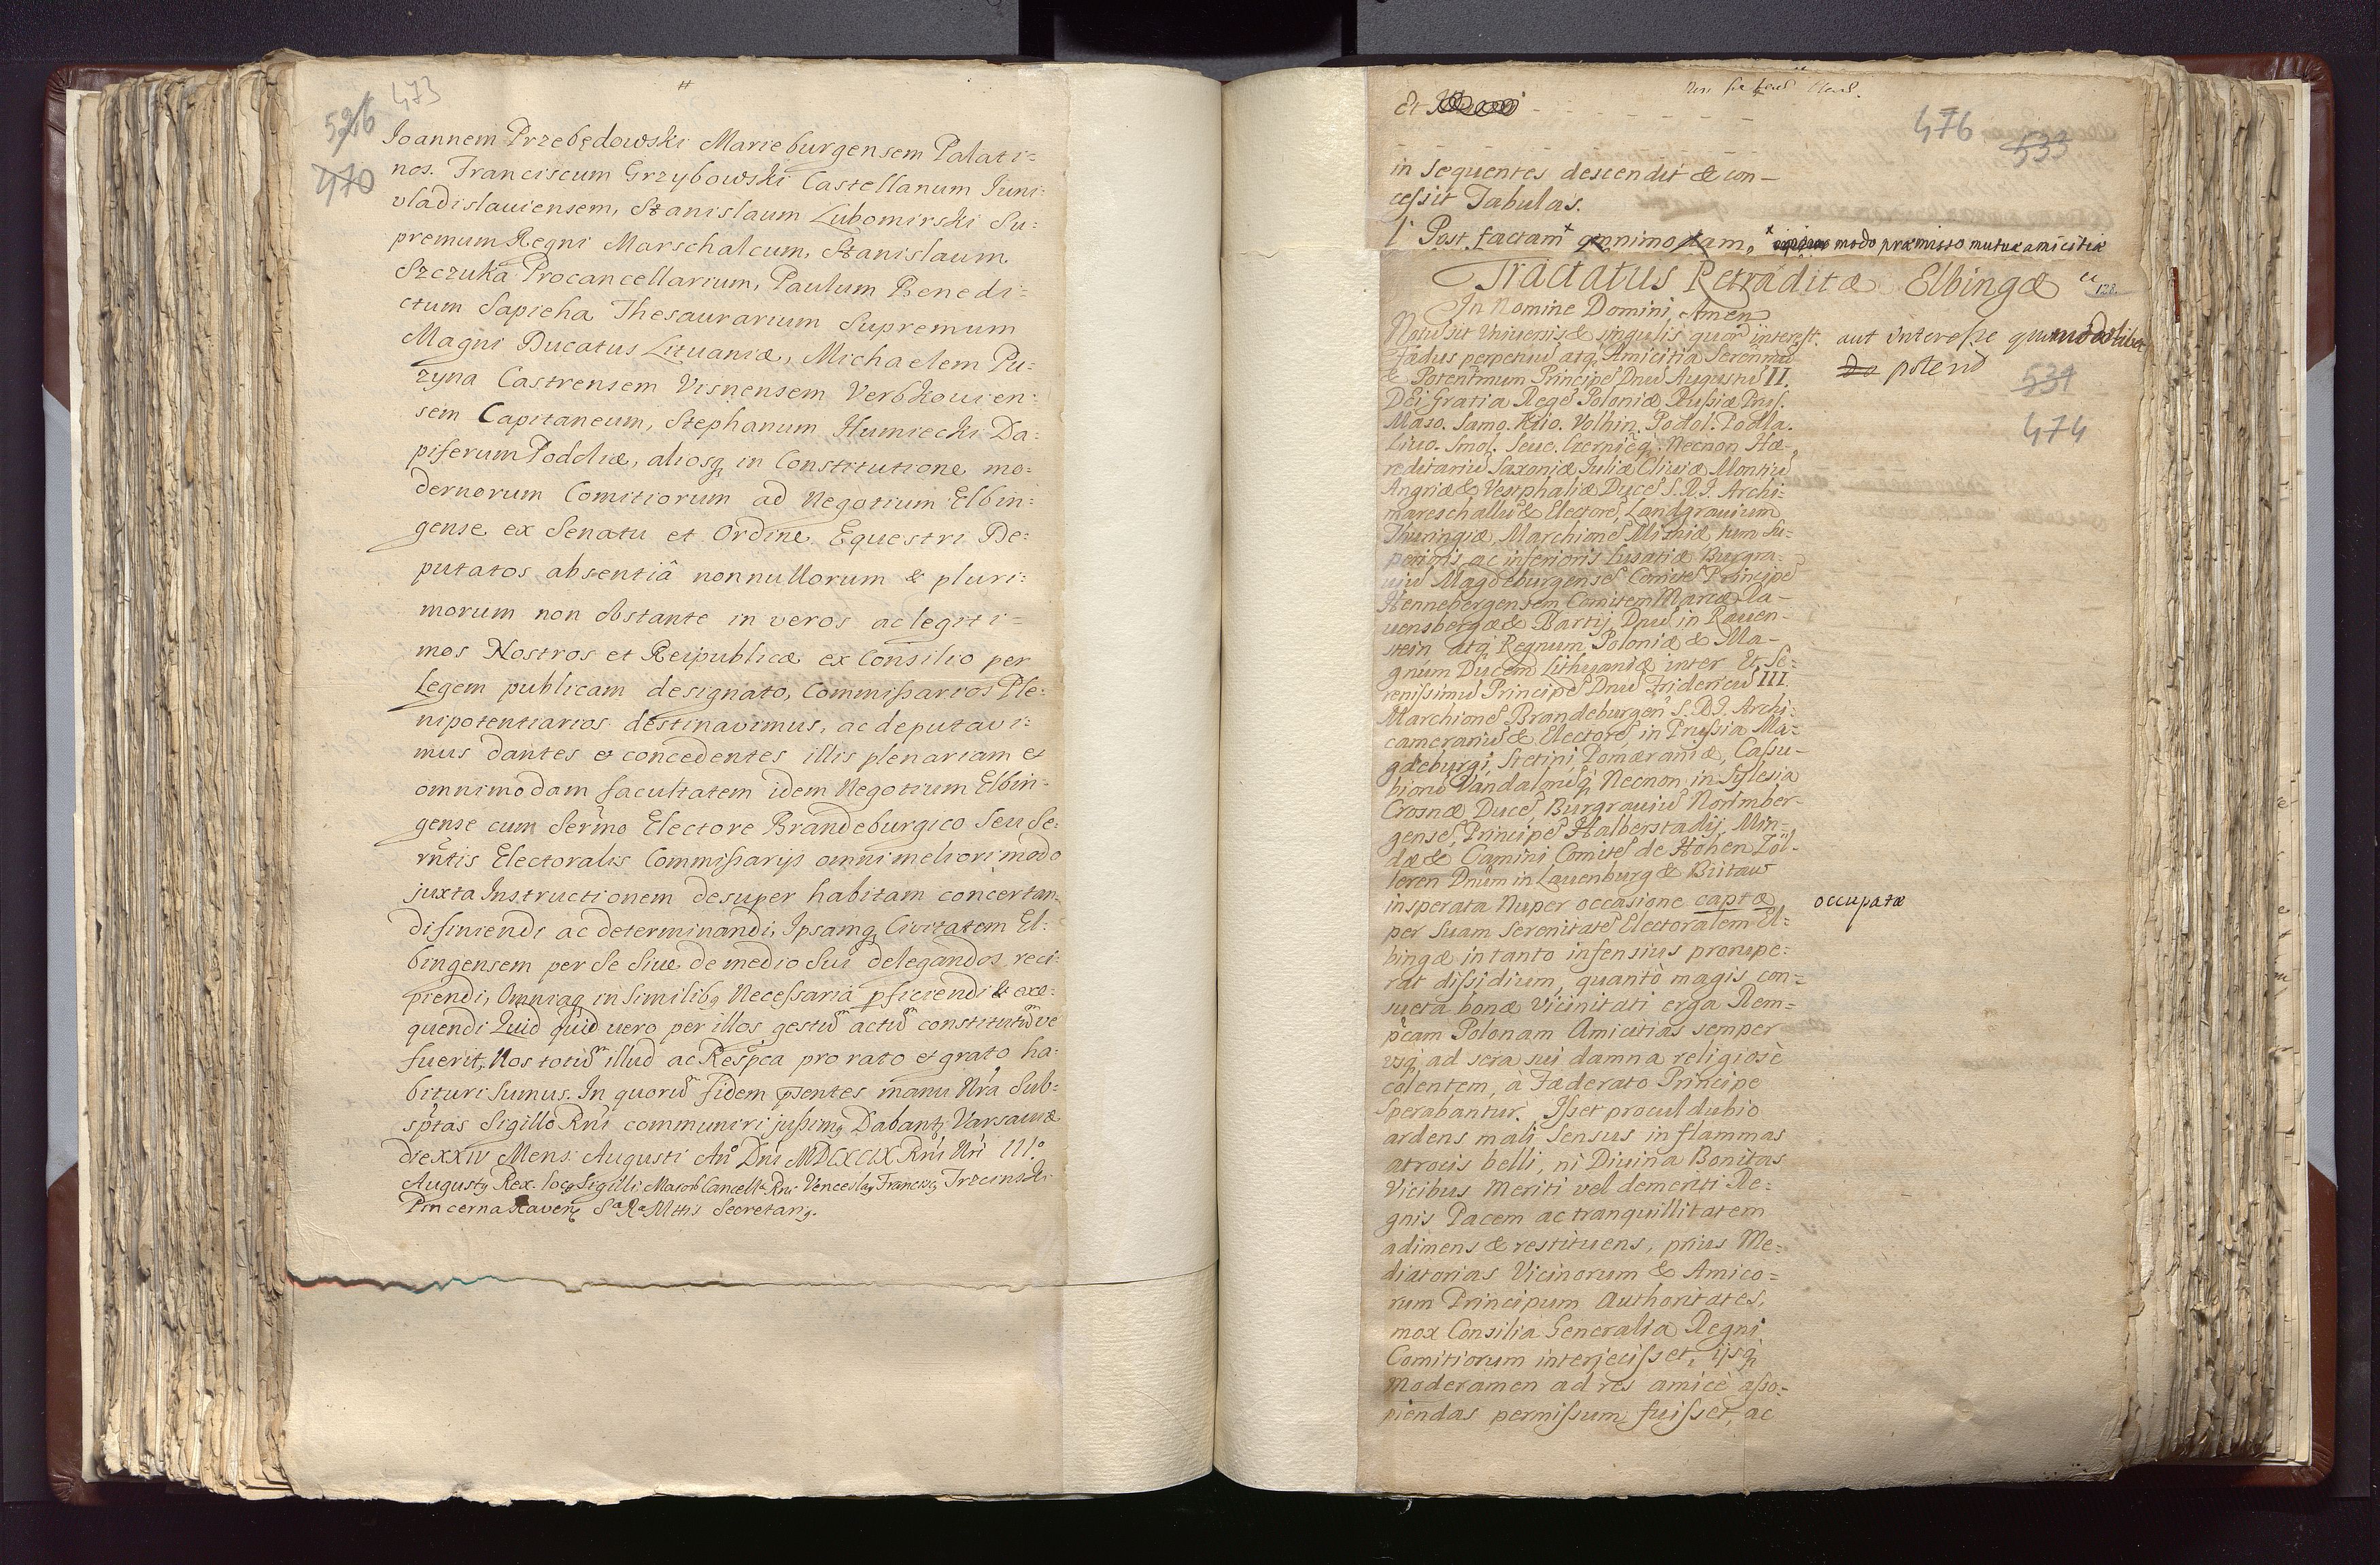 473
526
470
Joannem Przebędowski Marieburgensem Palati=
nos. Franciscum Grzybowski Castellanum Juni=
vladislauiensem, Stanislaum Lubomirski Su=
premum Regni Marschalcum, Stanislaum
Szczuka Procancellarium, Paulum Benedi=
ctum Sapieha Thesaurarium Supremum
Magni Ducatus Lituaniæ, Michaelem Pu=
zyna Castrensem Visnensem Verbkovien=
sem Capitaneum, Stephanum Humiecki Da=
piferum Podoliæ, aliosq in Constitutione mo=
dernorum Comitiorum ad Negotium Elbin=
gense ex Senatu et Ordine Equestri De=
putatos absentiâ nonnullorum & pluri=
morum non obstante in veros ac legiti=
mos Nostros et Reipublicæ ex Consilio per
Legem publicam designato, Commissarios Ple=
nipotentiarios destinavimus, ac deputavi=
mus dantes et concedentes illis plenariam et
omnimodam facultatem idem Negotium Elbin=
gense cum Sermo Electore Brandeburgico Seu Se=
rntis Electoralis Commissarijs omni meliori modo
juxta Instructionem desuper habitam concertan=
di finiendi ac determinandi, Ipsamq Civitatem El=
bingensem per Se Siue de medio Sui delegandos reci=
piendi, Omniaq in Similibq Necessaria pficiendi & exe=
quendi Quid quid uero per illos gestum actum constitutumve
fuerit, Nos totum illud ac Respca pro rato et grato ha=
bituri Sumus. In quorum fidem psentes manu Nra Sub=
sptas Sigillo Rni communiri jussimq Dabantq Varsauiæ
die XXIV Mens: Augusti Ao Dni MDCXCIX Rni Nri III.o
Augustq Rex. locq Sigilli Maioris Cancellæ Rni Venceslaq Franciscq Trzcinski
Pincerna Rauenq Sæ Ræ Mttis Secretariq.
Et
476
533
in Sequentes descendit & con=
cessit Tabulas.
1 Post factam omnimodam, modo præmisso mutuæ amicitiæ
Tractatus Retraditæ Elbingæ
128.
In Nomine Domini Amen
Notum sit Universis & singulis quor interest. aut interesse quomodolibet
poterit
Fædus perpetuum atq Amicitia Serenmum
& Potentmum Principem Dnum Augustum II.
DEi Gratia Regem Poloniæ Russiæ Prus.
Maso. Samo. Kiio. Volhin. Podol. Podla.
Livo. Smol. Seue. Czernicq. Necnon Hæ=
reditarium Saxoniæ Juliæ Cliviæ Montium
Angriæ & Vestphaliæ Ducem S. R. I. Archi=
mareschallum & Electorem, Landgravium
Thuringiæ, Marchionem Misniæ tum Su=
perioris ac inferioris Lusatiæ Burgra=
vium Magdeburgensem Comitem Principem
Hennebergensem Comitem Marcæ Ra=
uensbergæ & Bartij, Dnum in Rauen=
stein atq Regnum Poloniæ & Ma=
gnum Ducem Lithuaniæ inter Et Se=
renissimum Principem Dnum Fridericum III.
Marchionem Brandeburgen S. R. I. Archi=
camerarium & Electorem in Prussia Ma=
gdeburgi, Stetini, Pomæraniæ, Cassu=
biorum Vandalorumq Necnon in Sylesia
Crosnæ Ducem, Burgrauium Norimber=
gensem, Principem Halberstadij Min=
dæ & Camini, Comitem de Hohen Zol=
leren Dnum in Lauenburg & Biitaw
insperata Nuper occasione captæ occupatæ
per Suam Serenitatem Electoralem El=
bingæ in tanto infensius prorupe=
rat dissidium, quantò magis con=
sueta bonæ Vicinitati erga Rem=
pcam Polonam Amicitias semper
usq ad sera sui damna religiosè
colentem, à Fæderato Principe
Sperabantur. Isset procul dubio
ardens mali Sensus in flammas
atrocis belli, ni Diuina Bonitas
Vicibus Meriti vel demeriti Re=
gnis Pacem ac tranquillitatem
adimens & restituens, prius Me=
diatorias Vicinorum & Amico=
rum Principum Authoritates,
mox Consilia Generalia Regni
Comitiorum interjecisset, ijsq
Moderamen ad res amicè asso=
piendas permissum fuisset, ac
531
474